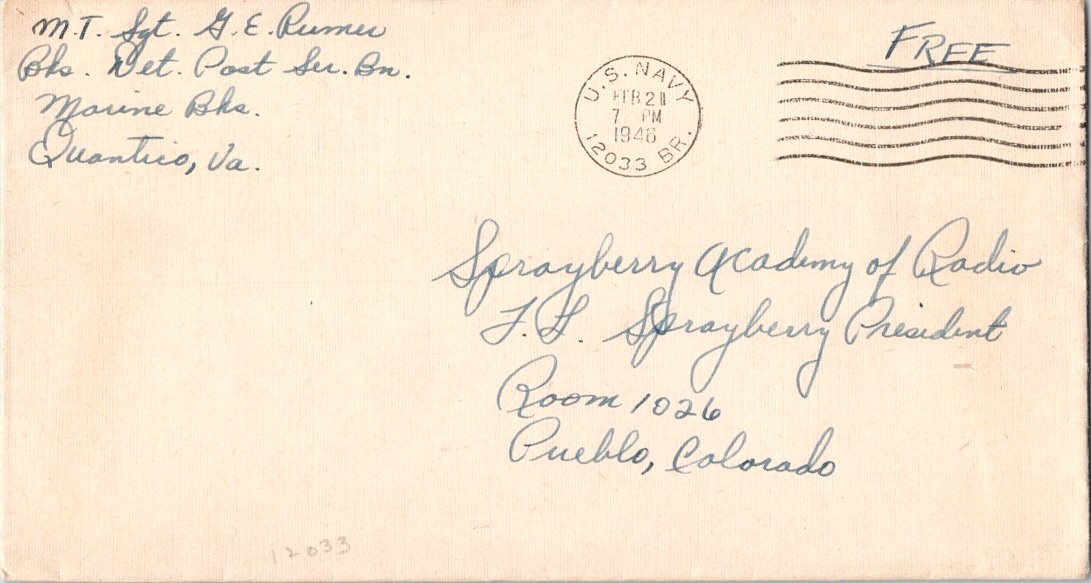 M.T. Sgt. G. E. Rumer
Bks. Det. Post Ser. Bn.
Marine Bks.
Quantico, Va.
U.S. NAVY
FEB 21
7 PM
1946
12033 BR.
FREE
Sprayberry Academy of Radio
F. L. Sprayberry President
Room 1026
Pueblo, Colorado
12033